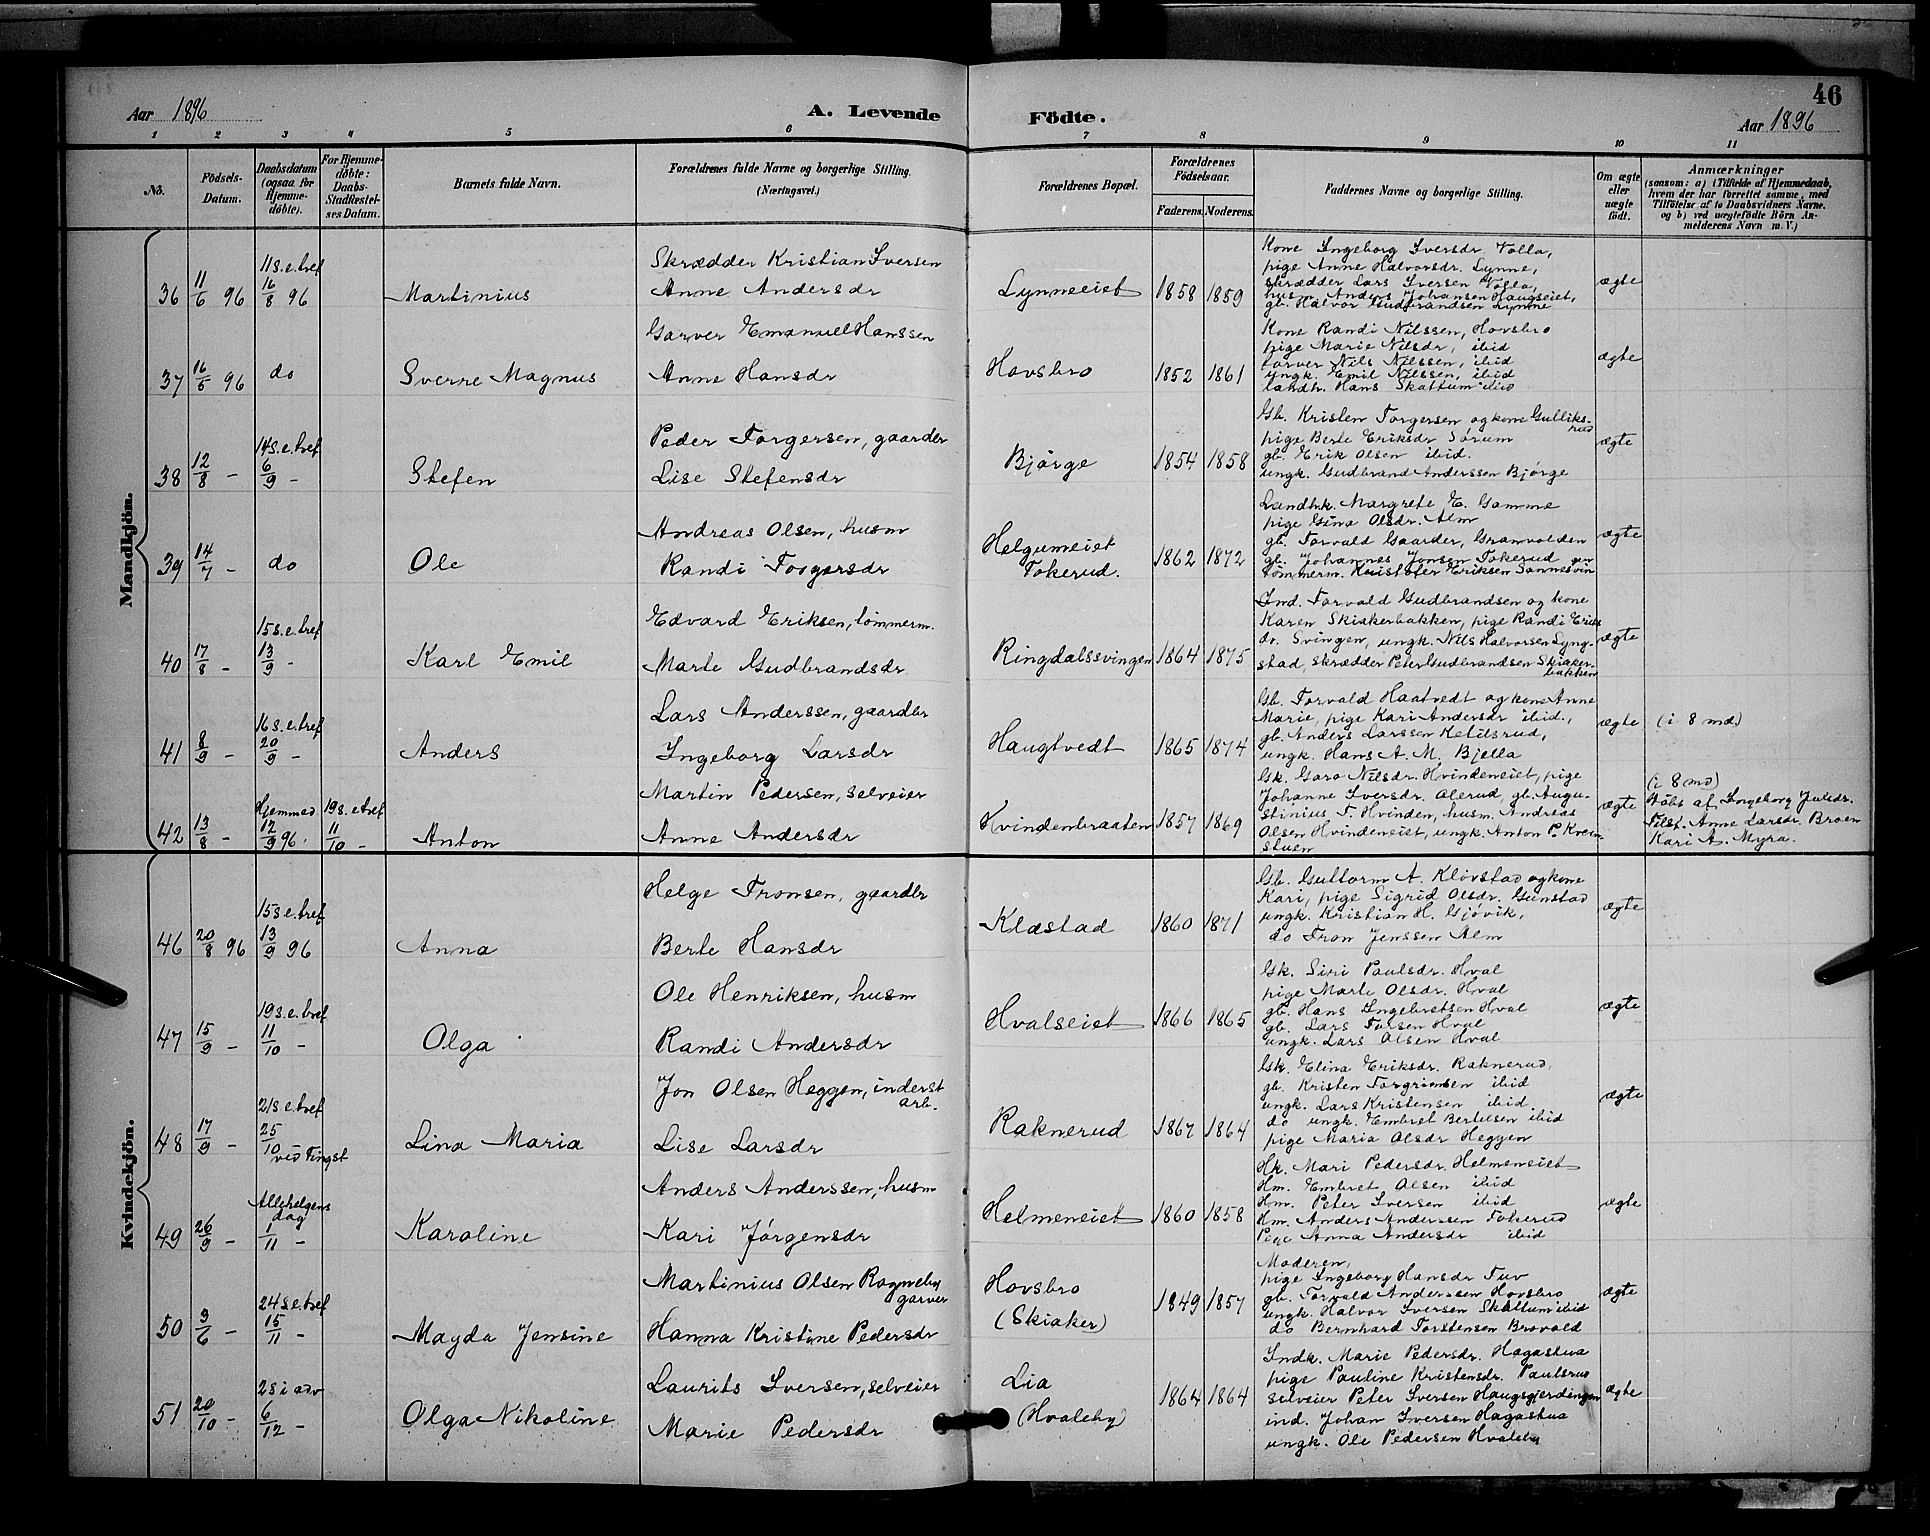 46
Aar 1896 A. Levende Födte. Aar 1896
1 2 3 4 5 6 7 8 9 10 11
No.
Födsels-Datum.
Daabsdatum (ogsaa for Hjemme-döbte).
For Hjemme-döbte: Daabs-Stadfæstel-ses Datum.
Barnets fulde Navn.
Forældrenes fulde Navne og borgerlige Stilling. (Næringsvei.)
Forældrenes Bopæl.
Forældrenes Födselsaar.
Faderens. Moderens.
Faddernes Navne og borgerlige Stilling.
Om ægte eller uægte födt.
Anmærkninger
(saasom: a) i Tilfælde af Hjemmedaab,
hvem der har forrettet samme, med
Tilföielse af to Daabsvidners Navne,
og b) ved uægtefödte Börn An-
melderens Navn m. V.)
Mandkjön.
36 11/6 96
11 s. e. tref 16/8 96
Martinius
Skrædder Kristian Iversen
Anne Andersdr
Lynneeiet
1858 1859
Kone Ingeborg Iversdr Volla,
pige Anne Halvorsdr. Lynne,
skrædder Lars Iversen Volla,
husm. Anders Johansen Haugseiet,
gb. Halvor Gudbrandsen Lynne
ægte
37 16/5 96
do
Sverre Magnus
Garver Emanuel Hanssen
Anne Hansdr
Hovsbro
1852 1861
Kone Randi Nilssen, Hovsbro
pige Marie Nilsdr, ibid
farver Nils Nilssen, ibid
ungk. Emil Nilssen, ibid
landh. Hans Skattum ibid
ægte
38 12/8 -
14 s. e. tref 6/9 -
Stefen
Peder Torgersen, gaardbr
Lise Stefensdr
Bjørge
1854 1858
Gb. Kristen Torgersen og kone Gulliks-
rud
pige Berte Eriksdr Sørum
gb. Erik Olsen ibid.
ungk. Gudbrand Anderssen Bjørge
ægte
39 14/7 -
do
Ole
Andreas Olsen, husm
Randi Torgersdr
Helgumeiet
Tokerud.
1862 1872
Landhk. Margrete E. Gamme
pige Gina Olsdr. Alm
gb. Torvald Gaarder, Granvolden
gb. Johannes Jonsen Tokerud
tømmerm. Kristofer Eriksen Sannesvin
gen
ægte
40 17/8 -
15 s. e. tref 13/9 -
Karl Emil
Edvard Eriksen, tømmerm.
Marte Gudbrandsdr
Ringdalssvingen
1864 1875
Ind. Torvald Gudbrandsen og kone
Karen Skiakerbakken, pige Randi Eriks
dr. Svingen, ungk. Nils Halvorsen Lyng-
stad, skrædder Peter Gudbrandsen Skiaker-
bakken
ægte
41 8/9 -
16 s. e. tref 20/9 -
Anders
Lars Anderssen, gaardbr
Ingeborg Larsdr
Haugtvedt
1865 1874
Gb. Torvald Haatvedt og kone Anne
Marie, pige Kari Andersdr ibid.,
gb. Anders Larssen Ketilsrud,
ungk. Hans A. M. Bjella
ægte
(i 8 md.)
42 13/8 -
Hjemmed 12/9 96.
19 s. e. tref 11/10 -
Anton
Martin Pedersen, selveier
Anne Andersdr
Hvindenbraaten
1857 1869
Gk. Goro Nilsdr. Hvindeneiet, pige
Johanne Iversdr. Alerud, gb. Augu-
stinius T. Hvinden, husm. Andreas
Olsen Hvindeneiet, ungk. Anton P. Kvern-
stuen
ægte
(i 8 md)
Døbt af Ingeborg Julsdr.
Tilst. Anne Larsdr. Braen
Kari A. Myra.
Kvindekjön.
46 20/8 96
15 s. e. tref 13/9 96
Anna
Helge Tronsen, gaardbr
Berte Hansdr
Klæstad
1860 1871
Gb. Guttorm A. Kløvstad og kone
Kari, pige Sigrid Olsdr. Gunstad
ungk. Kristian H. Gjøvik,
do Tron Jenssen Alm
ægte
47 15/9 -
19 s. e. tref 11/10 -
Olga
Ole Henriksen, husm
Randi Andersdr
Hvalseiet
1866 1865
Gk. Siri Paulsdr. Hval
pige Marte Olsdr. Hval
gb. Hans Ingebretsen Hval
gb. Lars Torsen Hval
ungk. Lars Olsen Hval
ægte
48 17/9 -
21 s. e. tref 25/10
ved Tingst
Lina Maria
Jon Olsen Heggen, inderst
arb.
Lise Larsdr
Raknerud
1867 1864
Gk. Elina Eriksdr. Raknerud,
gb. Kristen Torgrimsen ibid
ungk. Lars Kristensen ibid
do ungk. Embret Bertelsen ibid
pige Maria Olsdr Heggen
ægte
49 26/9 -
Allehelgens
dag 1/11 -
Karoline
Anders Anderssen, husm
Kari Jørgensdr
Helmeneiet
1860 1858
Hk. Mari Pedersdr. Helmeneiet
Hm. Embret Olsen ibid
Hm. Peter Iversen ibid
Hm. Anders Anderssen Tokerud
Pige Anna Andersdr ibid
ægte
50 3/6 -
24 s e. tref 15/11 -
Magda Jensine
Martinius Olsen Rognneby
garver
Hanna Kristine Pedersdr
Hovsbro
(Skiaker)
1849 1857
Moderen,
pige Ingeborg Hansdr Tuv
gb. Torvald Anderssen Hovsbro
ungk. Halvor Iversen Skattum ibid
do Bernhard Torstensen Brovold
ægte
51 20/10 -
2 s i adv 6/12 -
Olga Nikoline
Laurits Iversen, selveier
Marie Pedersdr
Lia
(Hvaleby)
1864 1864
Indk. Marie Pedersdr. Hagastua
pige Pauline Kristensdr. Paulsrud
selveier Peter Iversen Haugsgjerdingen
ind. Johan Iversen Hagastua
ungk. Ole Pedersen Hvaleby
ægte